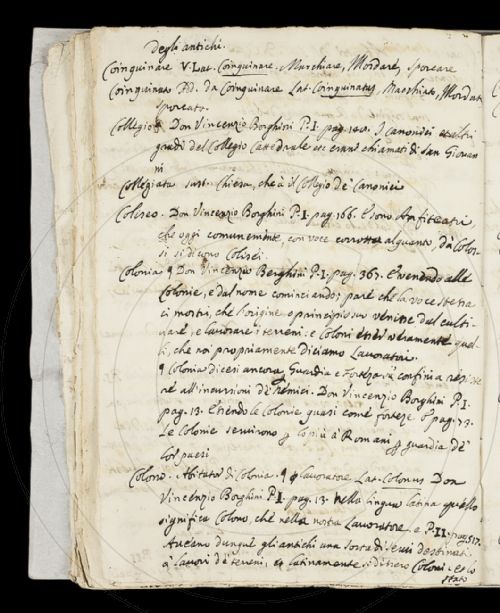 degli antichi.
Coinquinare V. Lat. Coinquinare. Macchiare, Mordare, sporcare
Coinquinato Ad. da Coinquinare Lat. Coinquinatus, Macchiato, Mordato
sporcato.
Collegio § Don Vincenzio Borghini P. I. pag. 140. I canonici et altri
gradi del Collegio Cattedrale erano chiamati di San Giovan
ni
Collegiata sust. Chiesa, che à il Collegio de' Canonici
Coliseo. Don Vincenzio Borghini P. I. pag. 166. E sono Anfiteatri
che oggi comunemente, con voce corrotta alquanto, da' Colos-
si si dicono Colisei.
Colonia § Don Vincenzio Borghini P. I. pag. 367. E venendo alle
Colonie, e dal nome cominciando; pare che la voce stessa
ci mostri, che l'origine e principio suo venisse dal culti-
vare, e lavorare i terreni: e Coloni veramente quel-
li, che noi propriamente diciamo Lavoratori.
§ Colonia dicesi ancora Guardia e fortezza a' confini a resiste-
re all'incursioni de' Nemici. Don Vincenzio Borghini P. I.
pag. 13. Essendo le Colonie quasi come fortezze e pag. 73.
Le Colonie servirono p lo più a' Romani p guardia de'
lor paesi
Colono. Abitator di Colonia. § p lavoratore Lat. Colonus Don
Vincenzio Borghini P. I. pag. 13. nella lingua latina quello
significa Colono, che nella nostra Lavoratore. e P. II. pag. 517.
Aveano dunque gli antichi una sorta di servi destinati
a' lavori de' terreni, et latinamente si dissero Coloni. et lo
stato